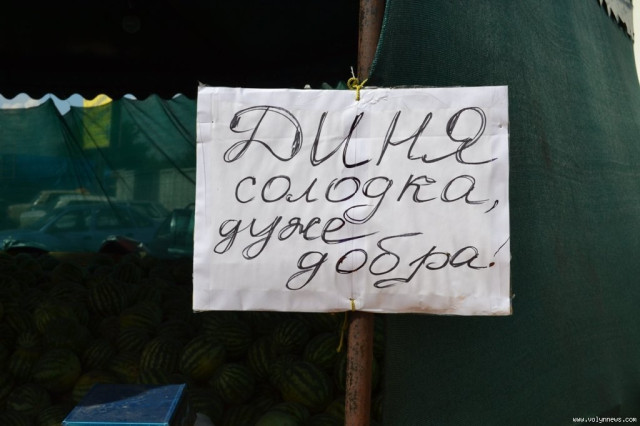 ДИНЯ
солодка,
дуже
добра!
www.volynnews.com